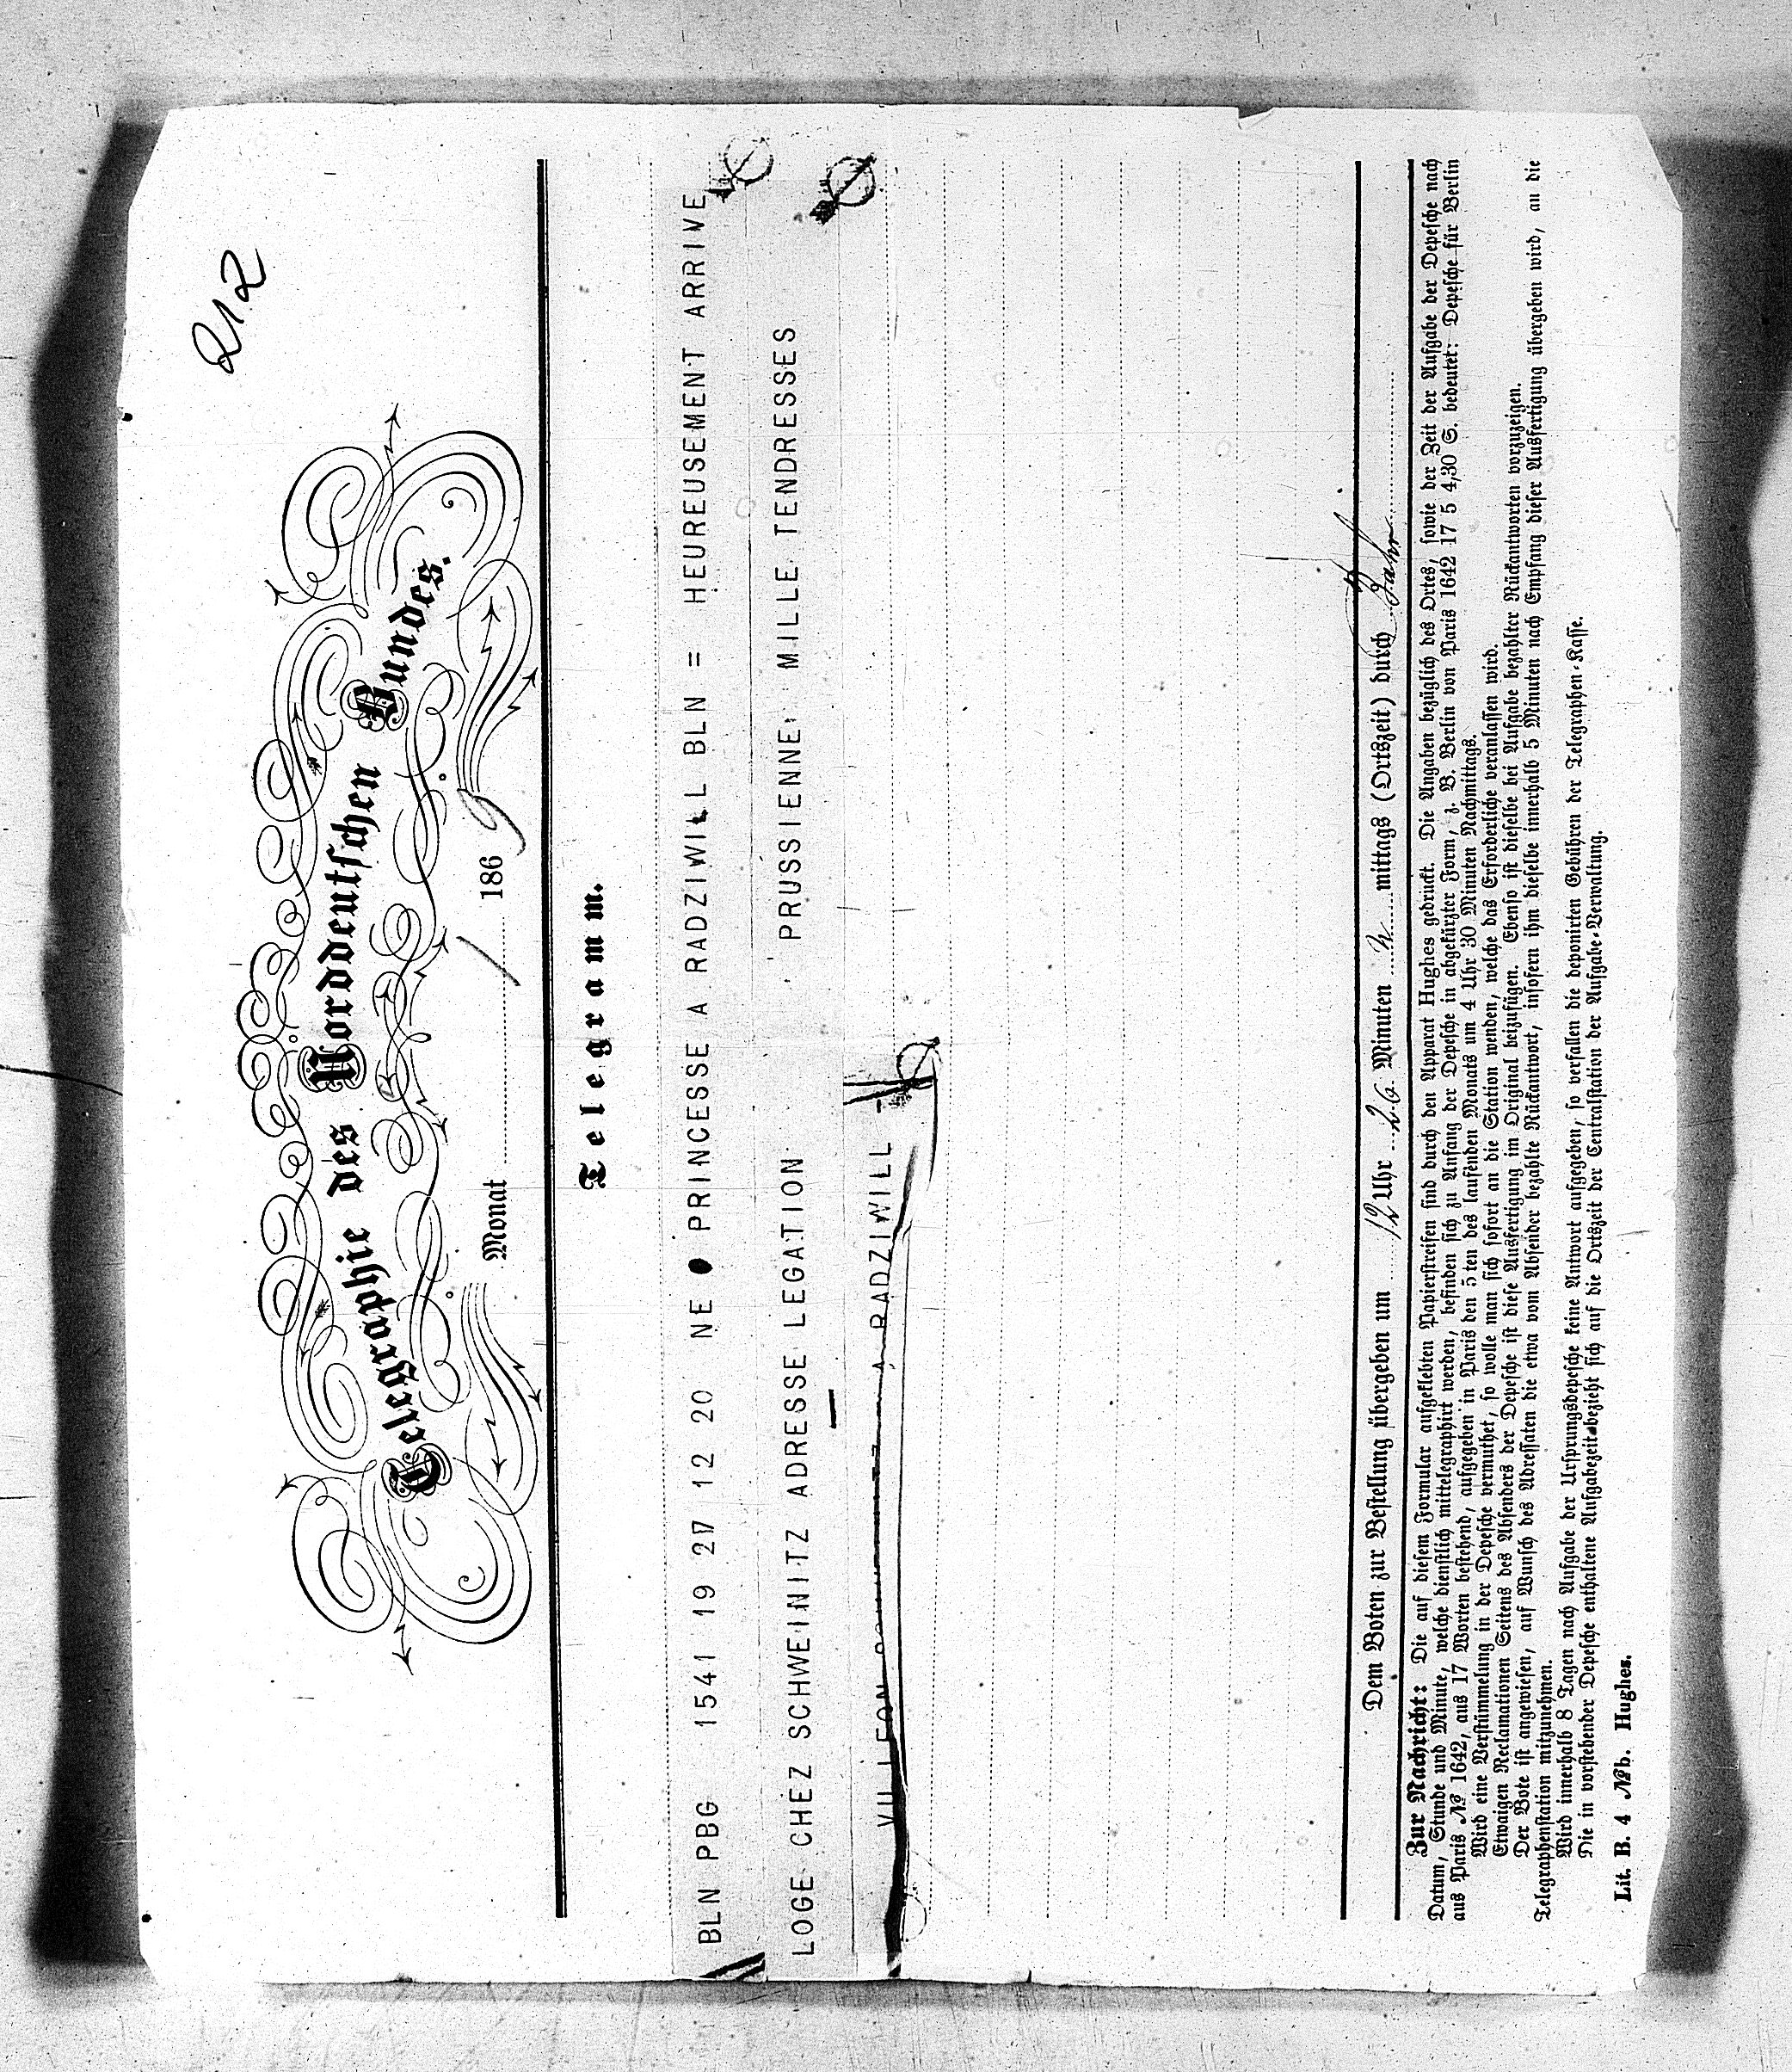 212
Telegraphie des Norddeutschen Bundes.
Monat 1 1869
Telegramm.
BLN PBG 1541 19 27 12 20 NE PRINCESSE A RADZIWILL BLN = HEUREUSEMENT ARRIVE
LOGE CHEZ SCHWEINITZ ADRESSE LEGATION PRUSSIENNE, MILLE TENDRESSES
VU LEON A RADZIWILL -
Dem Boten zur Bestellung übergeben um 12 Uhr 26 Minuten mittags (Ortszeit) durch
Zur Nachricht: Die auf diesem Formular aufgeklebten Papierstreifen sind durch den Apparat Hughes gedruckt. Die Angaben bezüglich des Ortes, sowie der Zeit der Aufgabe der Depesche nach
Datum, Stunde und Minute, welche dienstlich mittelegraphirt werden, befinden sich zu Anfang der Depesche in abgekürzter Form, z. B. Berlin von Paris 1642 17 5 4,30 S. bedeutet: Depesche für Berlin
aus Paris № 1642, aus 17 Worten bestehend, aufgegeben in Paris den 5ten des laufenden Monats um 4 Uhr 30 Minuten Nachmittags.
Wird eine Verstümmelung in der Depesche vermuthet, so wolle man sich sofort an die Station wenden, welche das Erforderliche veranlassen wird.
Etwaigen Reclamationen Seitens des Absenders der Depesche ist diese Ausfertigung im Original beizufügen. Ebenso ist dieselbe bei Aufgabe bezahlter Rückantworten vorzuzeigen.
Der Bote ist angewiesen, auf Wunsch des Adressaten die etwa vom Absender bezahlte Rückantwort, insofern ihm dieselbe innerhalb 5 Minuten nach Empfang dieser Ausfertigung übergeben wird, an die
Telegraphenstation mitzunehmen.
Wird innerhalb 8 Tagen nach Aufgabe der Ursprungsdepesche keine Antwort aufgegeben, so verfallen die deponirten Gebühren der Telegraphen-Kasse.
Die in vorstehender Depesche enthaltene Aufgabezeit bezieht sich auf die Ortszeit der Centralstation der Aufgabe-Verwaltung.
Lit. B. 4 №b. Hughes.